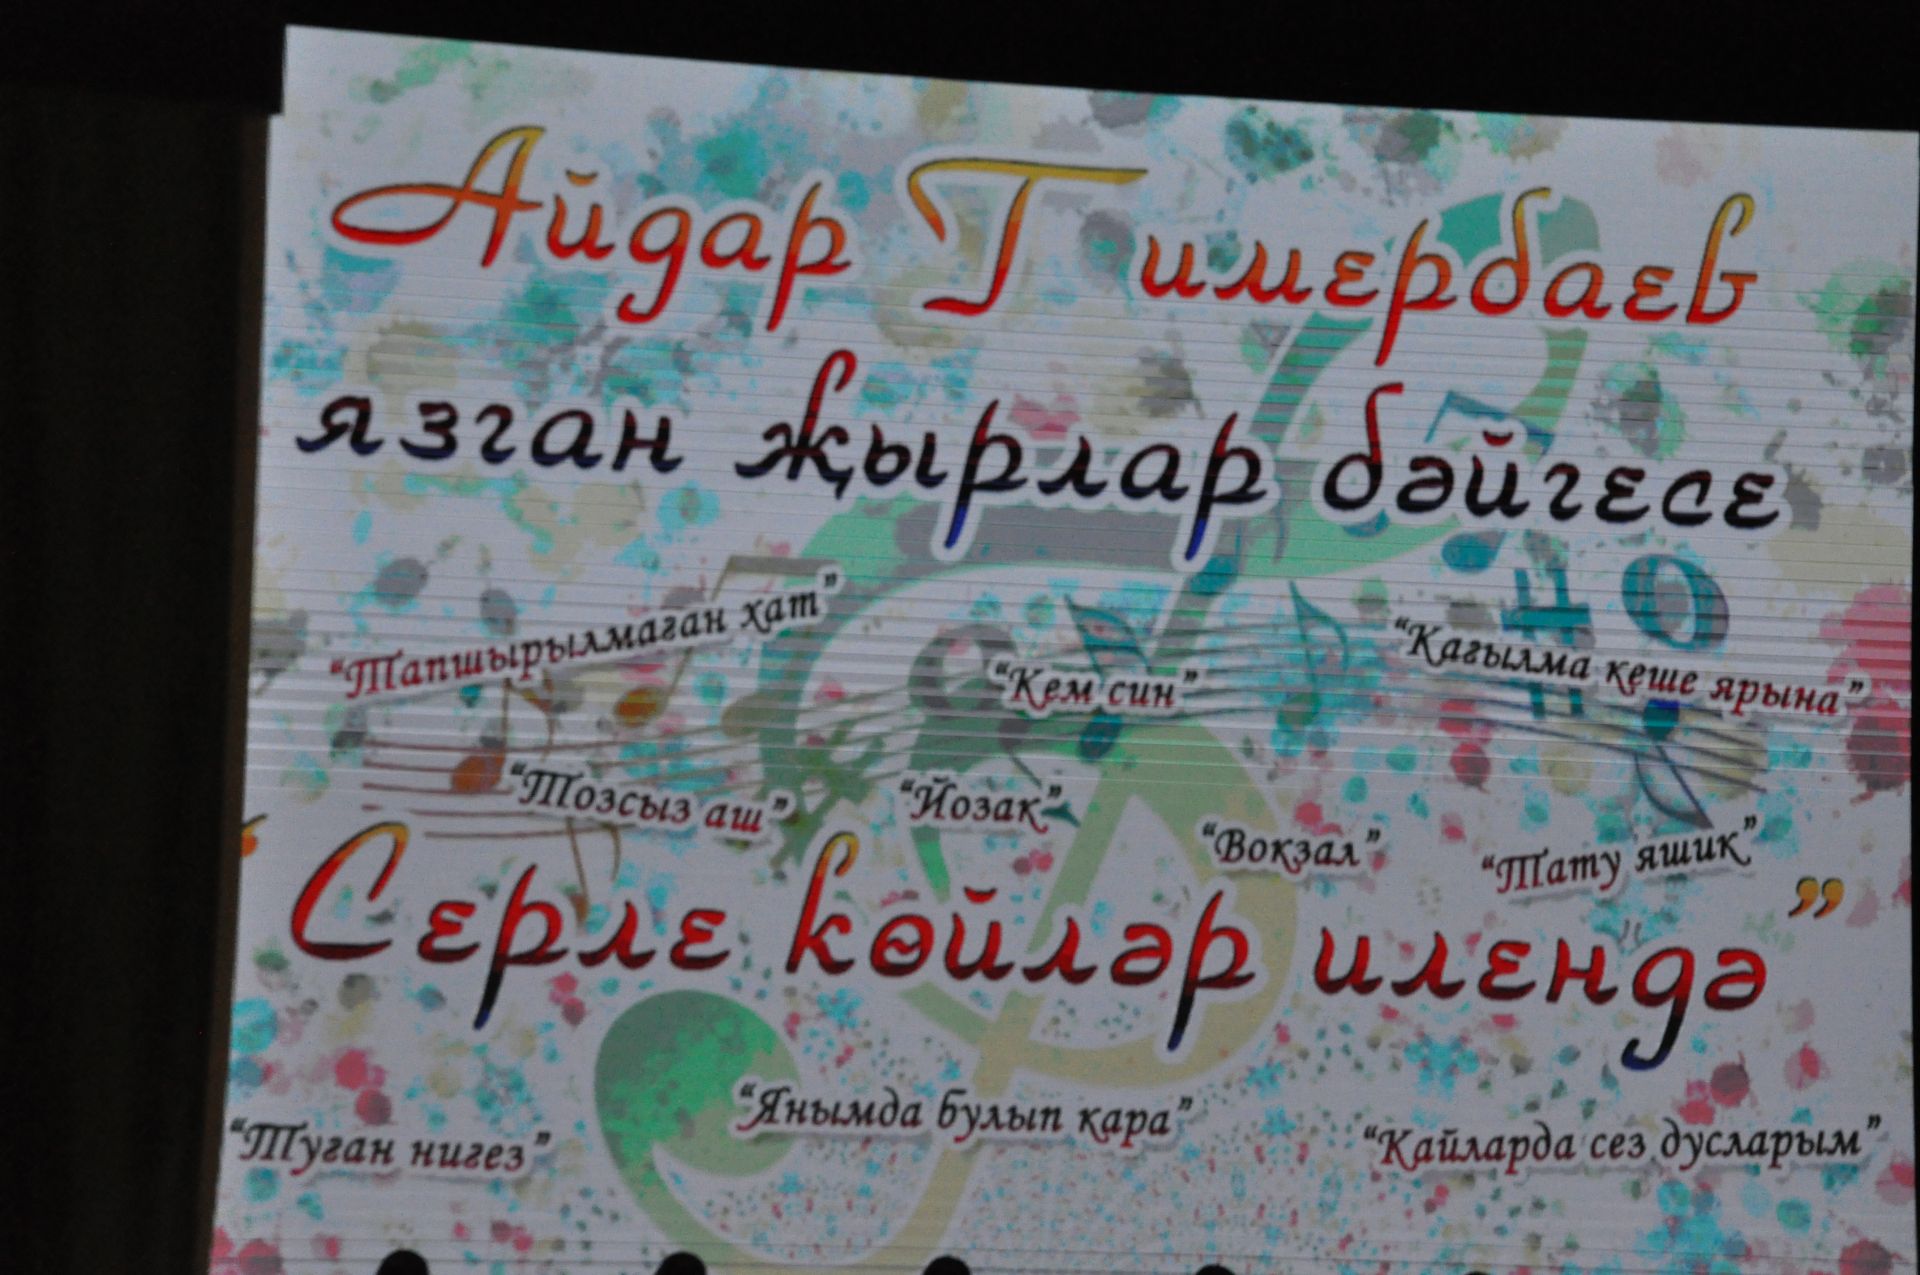 Айдар Тимербаев
язган җырлар бәйгесе
“Тапшырылмаган хат”
“Кем син”
“Кагылма кеше ярына”
“Тозсыз аш”
“Йозак”
“Вокзал”
“Тату яшик”
“Серле көйләр илендә”
“Туган нигез”
“Янымда булып кара”
“Кайларда сез дусларым”